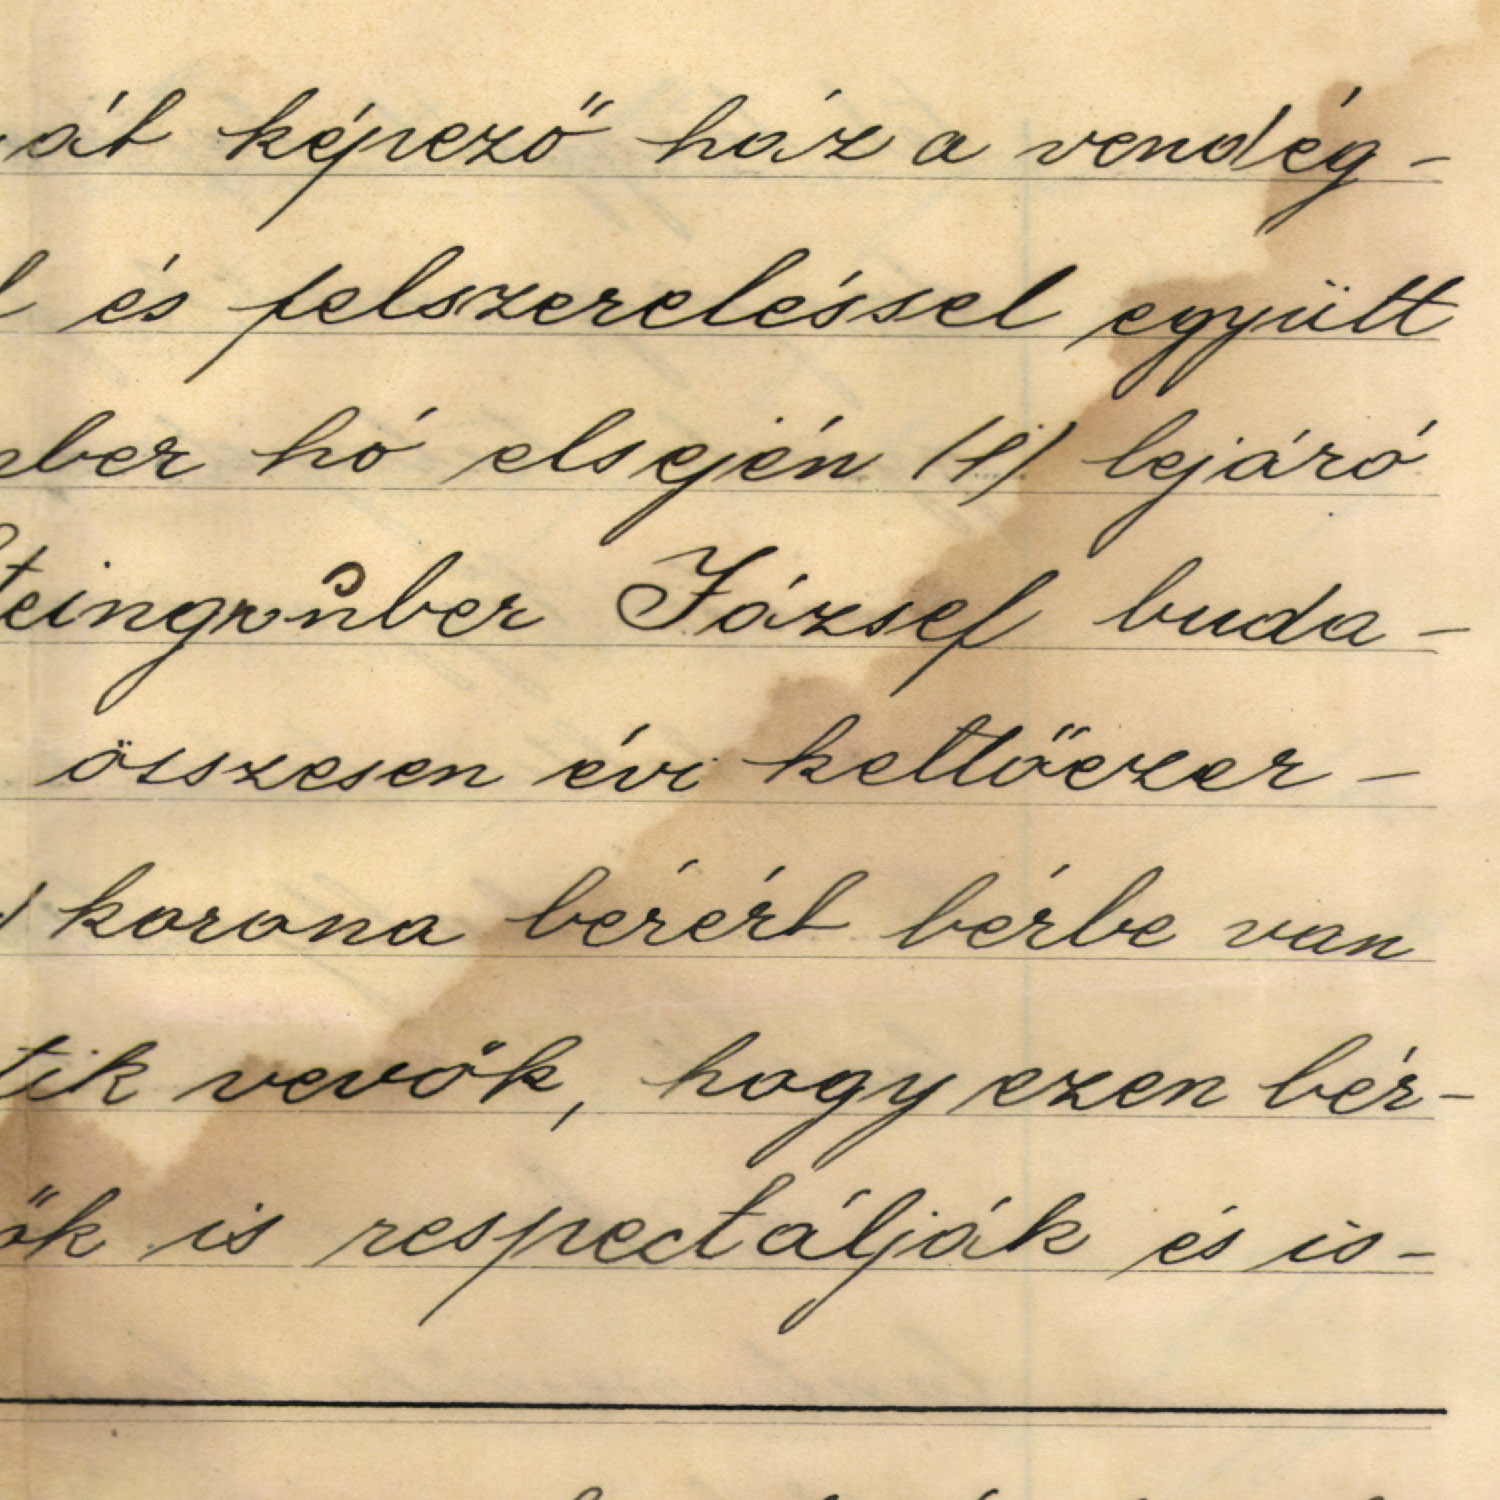 át képező ház a vendég-
és felszereléssel együtt
ber hó elsején (1) lejáró
teingruber József buda-
összesen évi kettőezer-
korona bérért bérbe van
tik vevők, hogy ezen bér-
ők is respectálják és is-